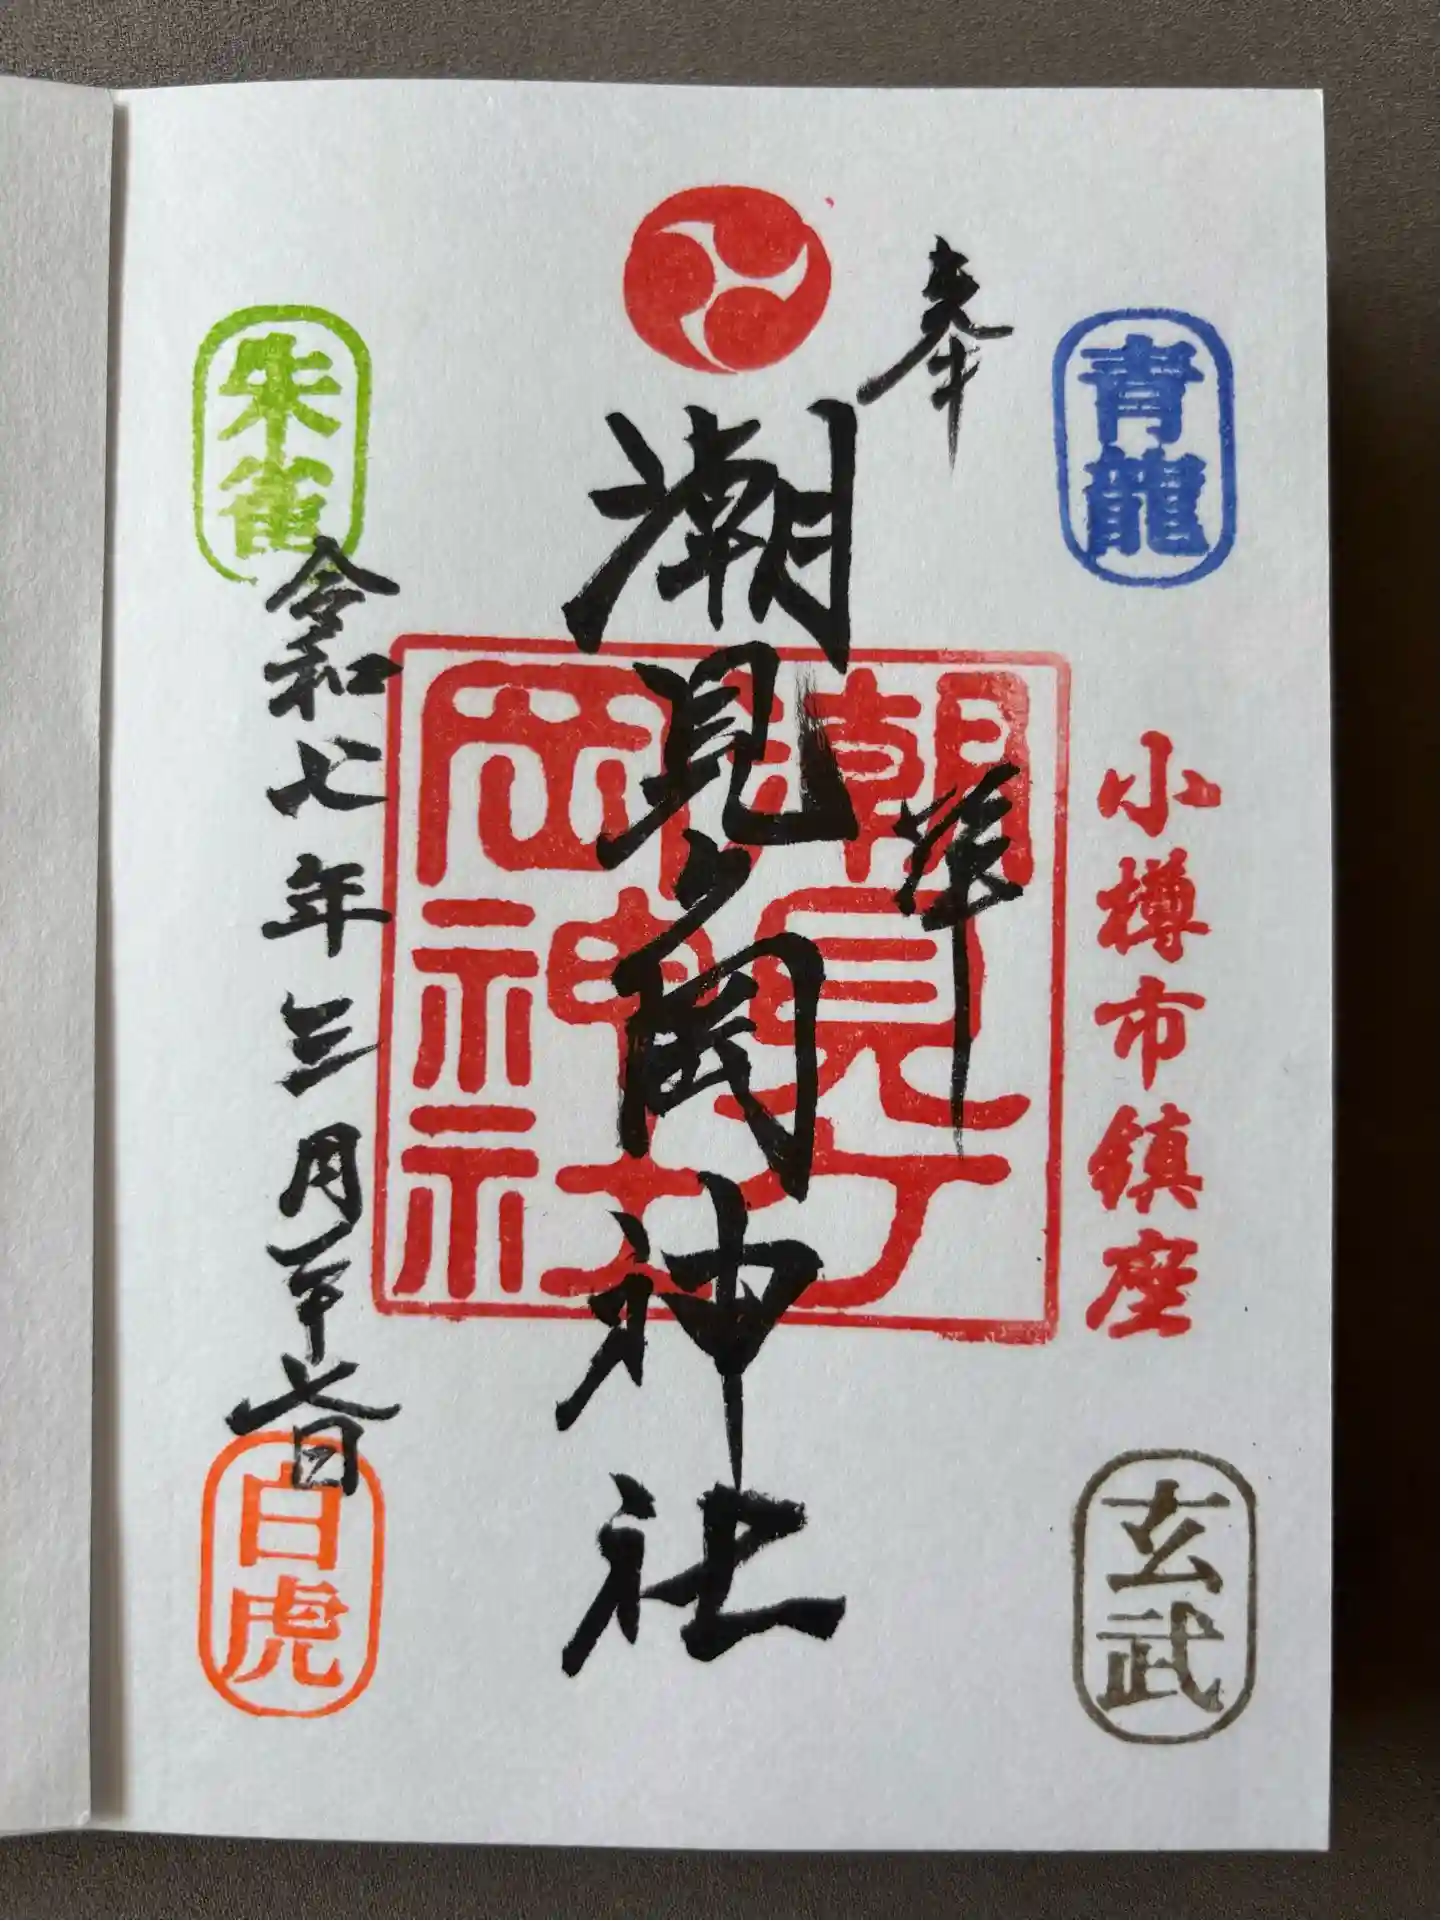 青龍
小樽市鎮座
玄武
奉拝
潮見ヶ岡神社
潮見ヶ
岡神社
朱雀
令和七年三月二十七日
白虎